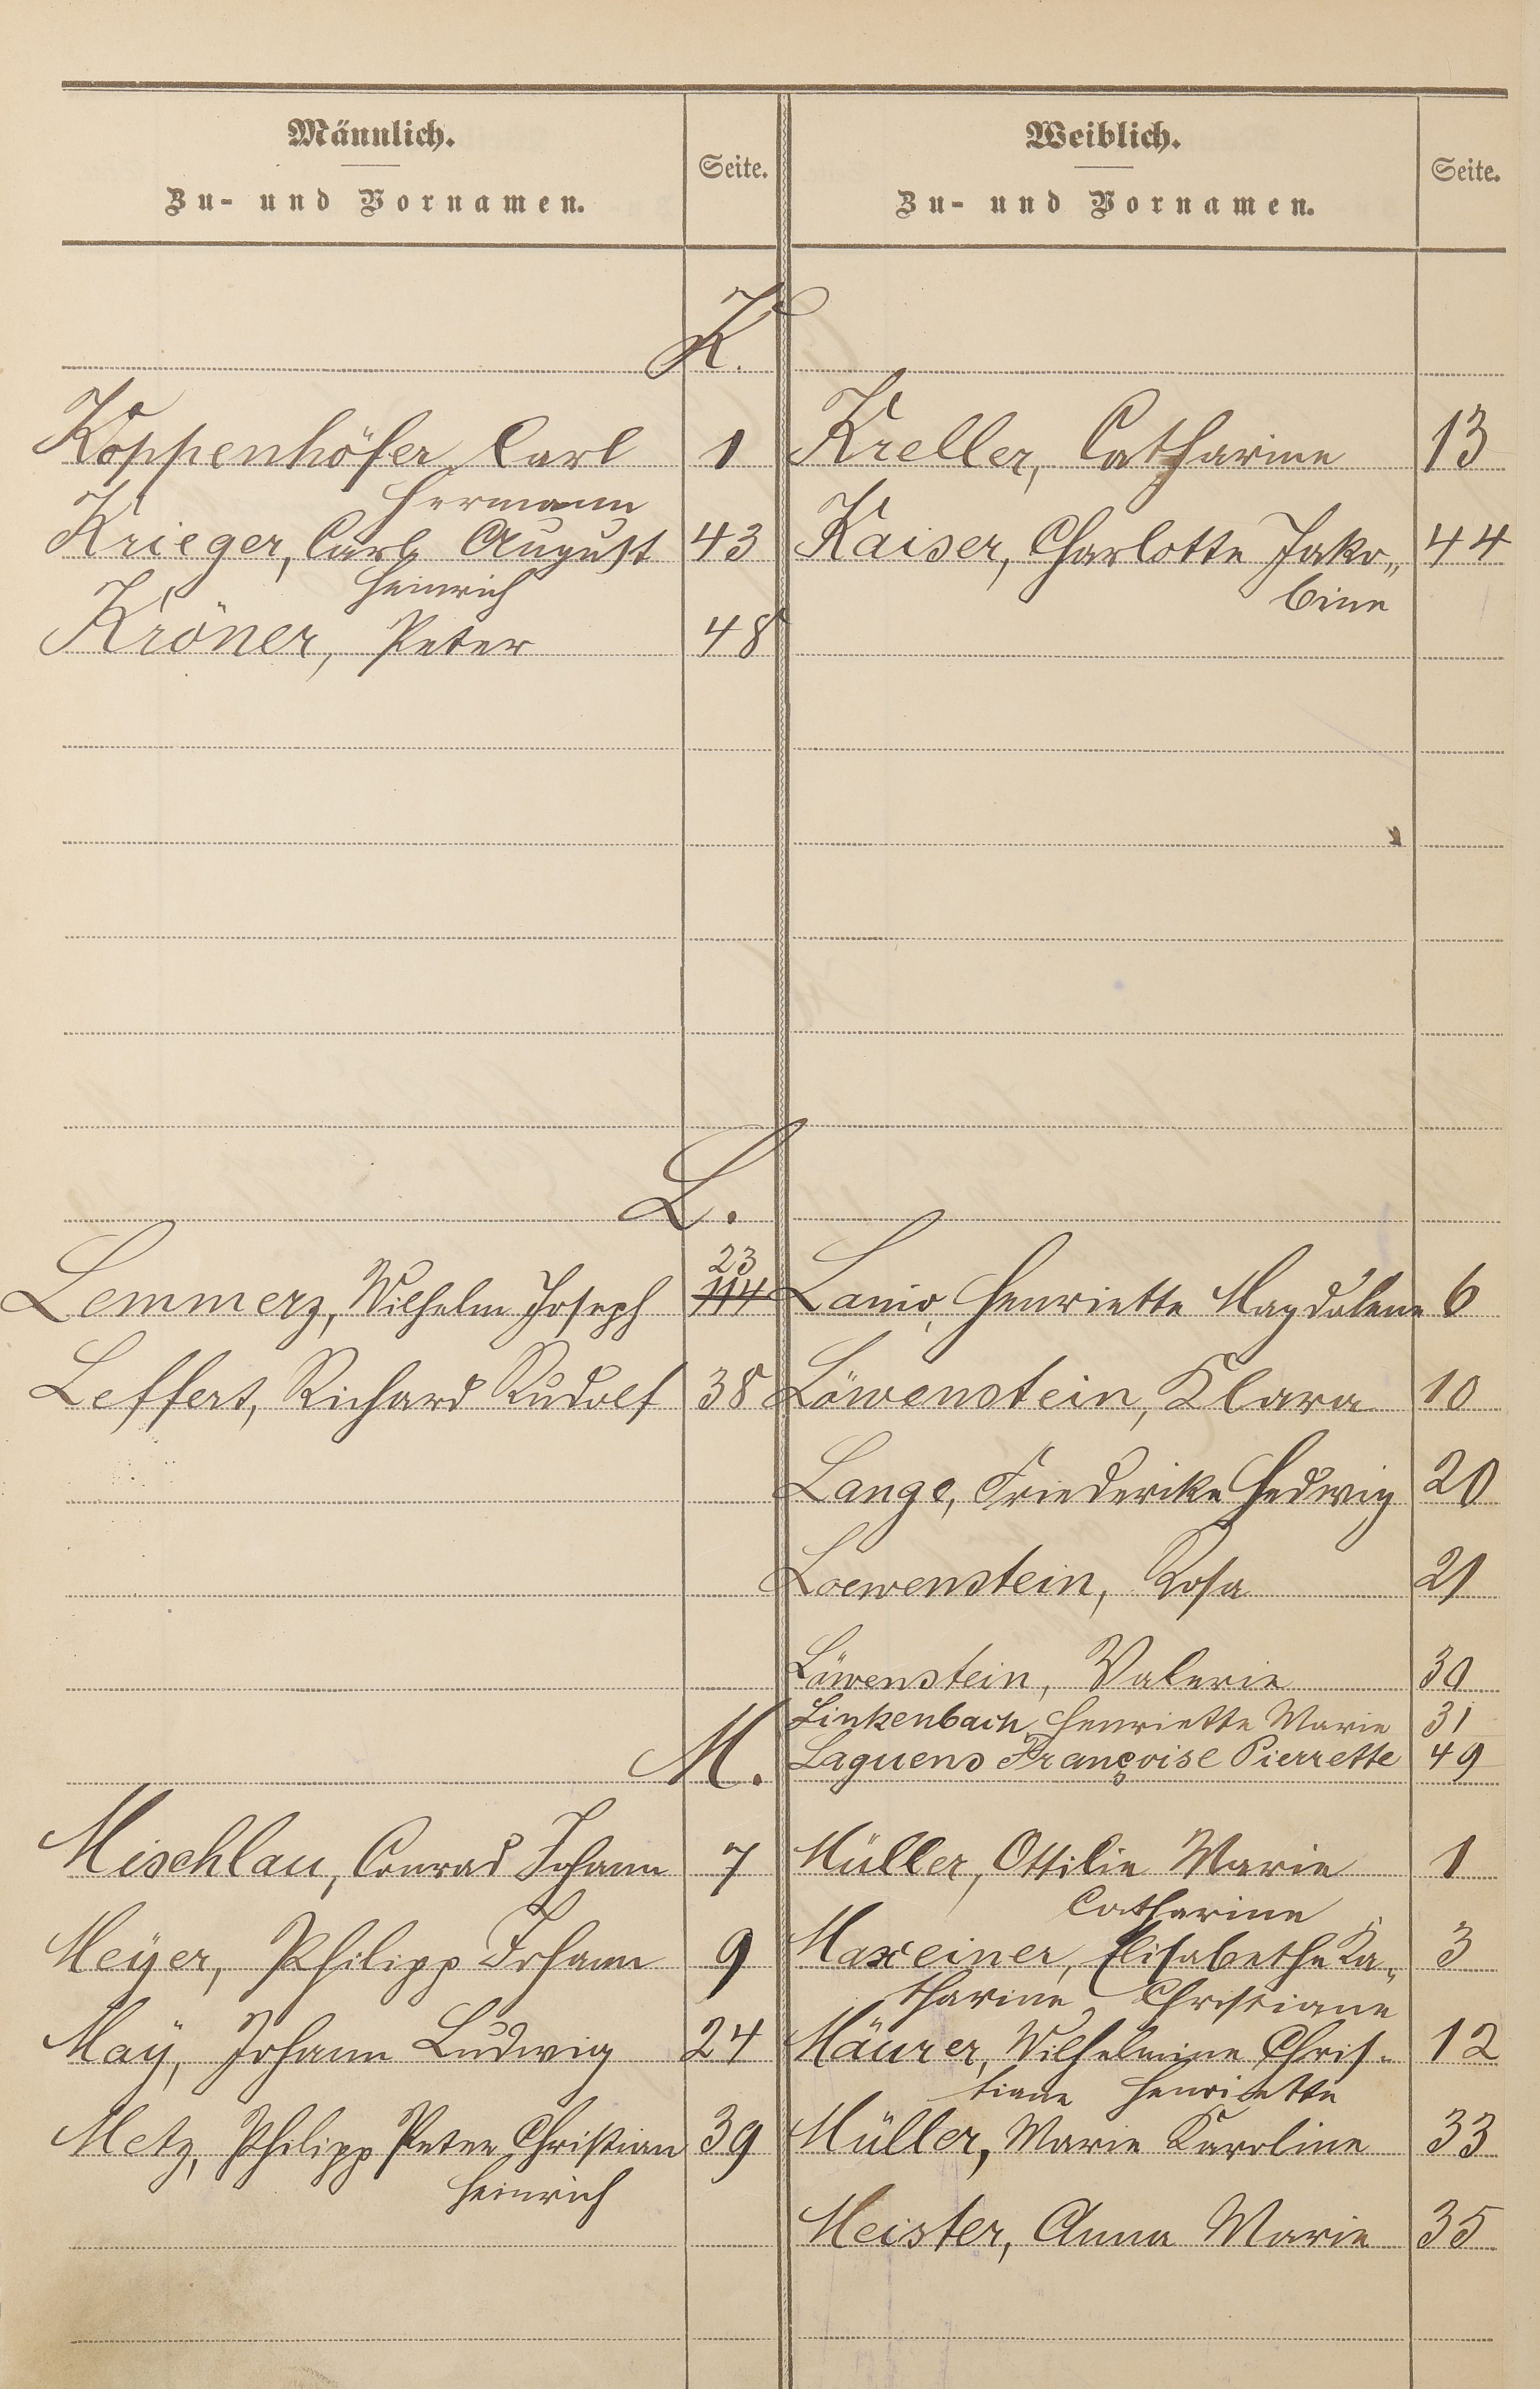 Männlich.
Zu- und Vornamen.
Seite.
Weiblich.
Zu- und Vornamen.
Seite.
K.
Koppenhöfer, Carl 1 Kreller, Catharine 13
Hermann
Krieger, Carl August 43 Kaiser, Charlotte Jako„ 44
Heinrich bine
Kröner, Peter 48
L.
23
Lemmerz, Wilhelm Joseph 114 Lanio, Henriette Magdalene 6
Leffert, Richard Rudolf 38 Löwenstein, Klara 10
Lange, Friederike Hedwig 20
Loewenstein, Rosa 21
Löwenstein, Valerie 30
Linkenbach, Henriette Marie 31
M. Laguens Françoise Pierrette 49
Mischlau, Conrad Johann 7 Müller, Ottilie Marie 1
Catharine
Meÿer, Philipp Johann 9 Maxeiner, Elisabethe Ka„ 3
tharine Christiane
Maÿ, Johann Ludwig 24 Mäurer, Wilhelmine Chris- 12
tiane Henriette
Metz, Philipp Peter Christian 39 Müller, Marie Karoline 33
Heinrich
Meister, Anna Marie 35